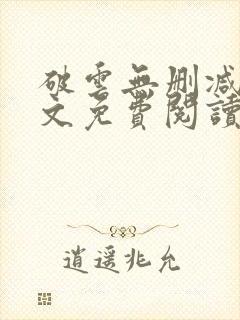 破雲無刪減
文免費閱讀
逍遥兆允